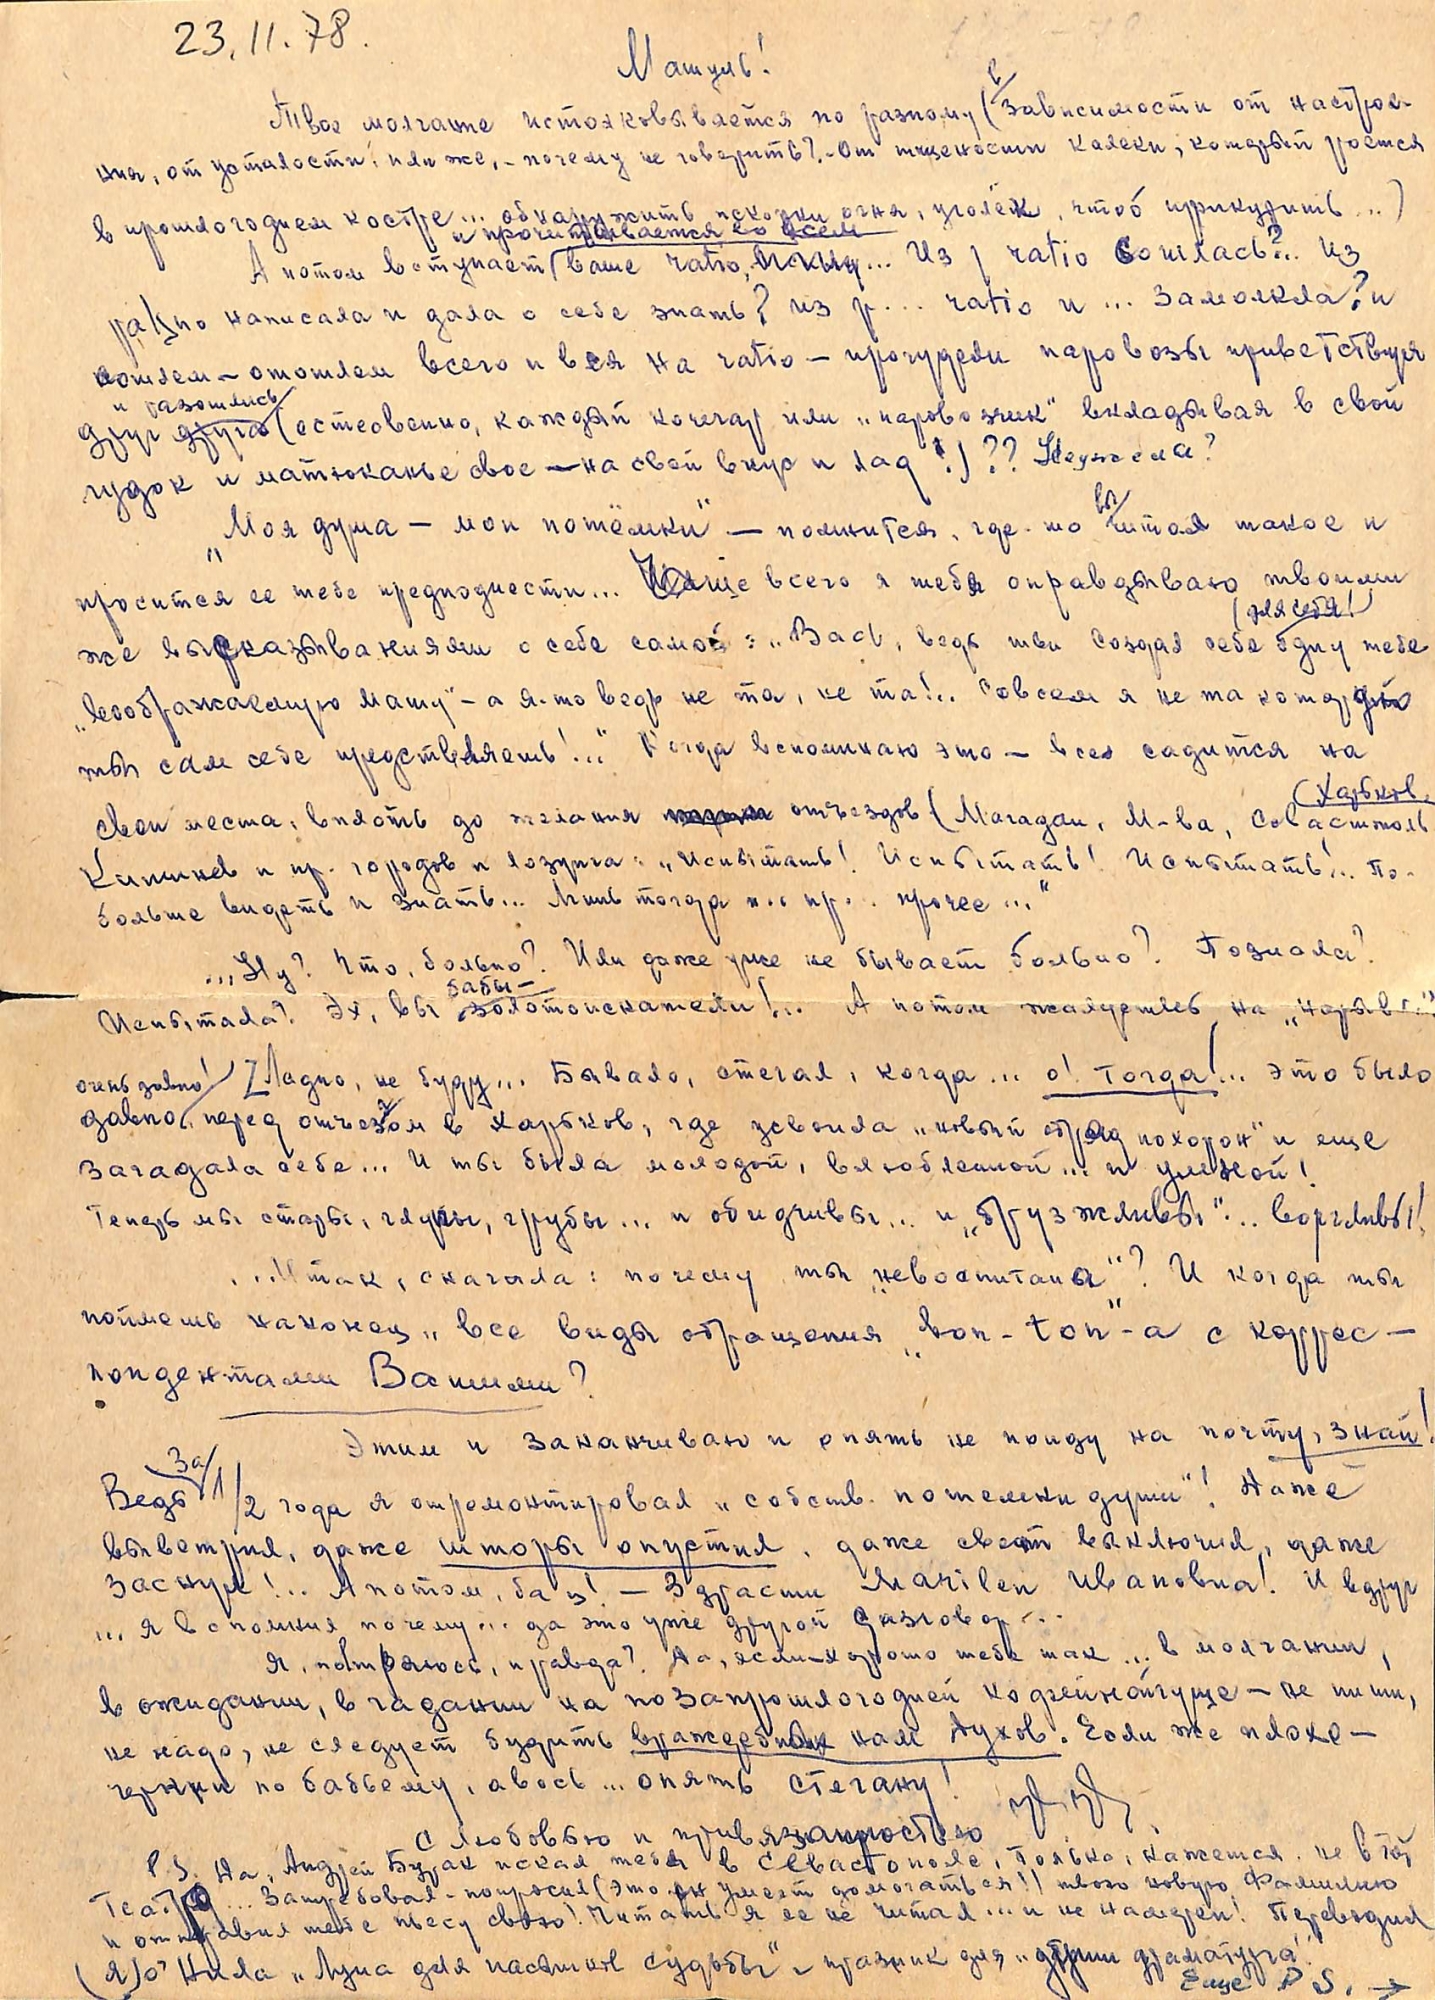 23.11.78.
Машуль!
Твое молчание истолковывается по разному (в зависимости от настрое-
ния, от усталости, или же, - почему не говорить? - От тщеносити калеки, который роется
в прошлогоднем костре... обнаружить искорки огня, уголёк, чтоб прикурить...)
и прочитывается во всем
А потом вступает ваше ratio, ... Из ratio сошлась?.. Из
ratio написала и дала о себе знать? из р... ratio и... замолкла? и
пошлем - отошлем всего и вся на ratio - прогудели паровозы приветствуя
и разошлись
друг друга (естественно, каждый кочегар или „паровозник" вкладывая в свой
гудок и матюканье свое - на свой вкус и лад!) ?? Неужела?
„Моя душа - мои потёмки" - помнится, где-то вычитал такое и
просится ее тебе преподнести... Чаще всего я тебя оправдываю твоими
(для себя!)
же высказываниями о себе самой: „Вад, ведь ты создал себе одну тебе
„воображаемую Машу" - а я-то ведь не та, не та!.. Совсем я не та которую
ты сам себе представляешь!..." Когда вспоминаю это - всё садится на
(Харьков,
свои места, вплоть до желания отъездов (Магадан, М-ва, Севастополь
Кишинев и пр. городов и лозунга: „Испытать! Испытать! Испытать!.. По-
больше видеть и знать... Лишь тогда и.. пр... прочее..."
...Ну? Что, больно? Или даже уже не бывает больно? Познала?
бабы -
Испытала? Эх, вы золотоискатели!.. А потом жалуешься на „нарывы"
очень давно! [Ладно, не буду... Бывало, стегал, когда... о! тогда!... это было
давно, перед отъездом в Харьков, где усвоила „новый обряд похорон" и еще
загадала себе... И ты была молодой, влюбленной... и умной!
Теперь мы стары, глупы, грубы... и обидчивы... и „брузжливы"... ворчливы!
...Итак, сначала: почему ты „невоспитана"? И когда ты
поймешь наконец „все виды обращения „bon-ton"-а с коррес-
пондентами Вашими?
Этим и заканчиваю и опять не пойду на почту, знай!
Ведь за 1/2 года я отремонтировал „собств. потемки души"! Даже
выветрил, даже шторы опустил, даже свет выключил, даже
заснул!.. А потом, бац! - Здрасти Marilen Ивановна! И вдруг
... я вспомнил почему... да это уже другой разговор...
Я, повторяюсь, правда? Да, если хорошо тебе так... в молчании,
в ожидании, в гадании на позапрошлогодней кофейной гуще - не пиши,
не надо, не следует будить враждебных нам духов. Если же плохо -
черкни по бабьему, авось... опять стегану!
С любовью и привязанностью
P.S. Да, Андрей Бурак искал тебя в Севастополе, только, кажется, не в той
Театр... Затребовал-попросил (это он умеет домогаться!) твою новую фамилию
и отправил тебе пьесу свою! Читать я ее не читал... и не намерен! Переводил
(я) О'Нила „Луна для пасынков судьбы" - праздник для „души драматурга"
Еще P S. →